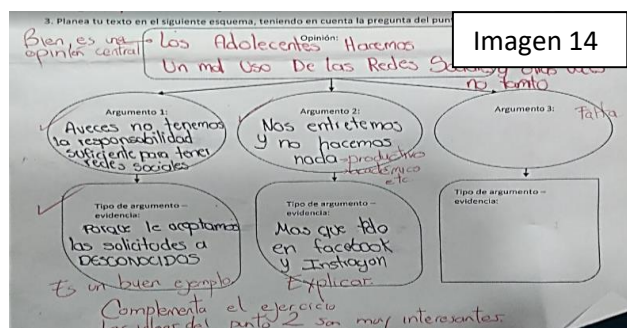 3. Planea tu texto en el siguiente esquema, teniendo en cuenta la pregunta del
Imagen 14
Bien, es una
opinión central
Opinión:
Los Adolecentes Hacemos
Un mal Uso De las Redes
no tanto
Argumento 1:
Aveces no tenemos
la responsabilidad
suficiente para tener
redes sociales
Argumento 2:
Nos entretemos
y no hacemos
nada productivo
académico
etc
Argumento 3:
Falta
Tipo de argumento –
evidencia:
Porque le aceptamos
las solicitudes a
DESCONOCIDOS
Tipo de argumento –
evidencia:
Mas que todo
en facebook
y Instragan
Tipo de argumento –
evidencia:
Es un buen ejemplo
Explicar
Complementa el ejercicio
Las ideas del punto 2 son muy interesantes.